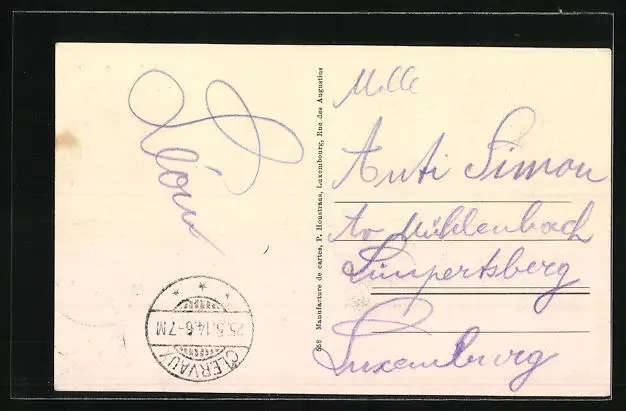 Léon
CLERVAUX
25.5.14.6-7M
658 Manufacture de cartes, P. Houstraas, Luxembourg, Rue des Augustins
Mlle
Anti Simon
Av Mühlenbach
Limpertsberg
Luxemburg